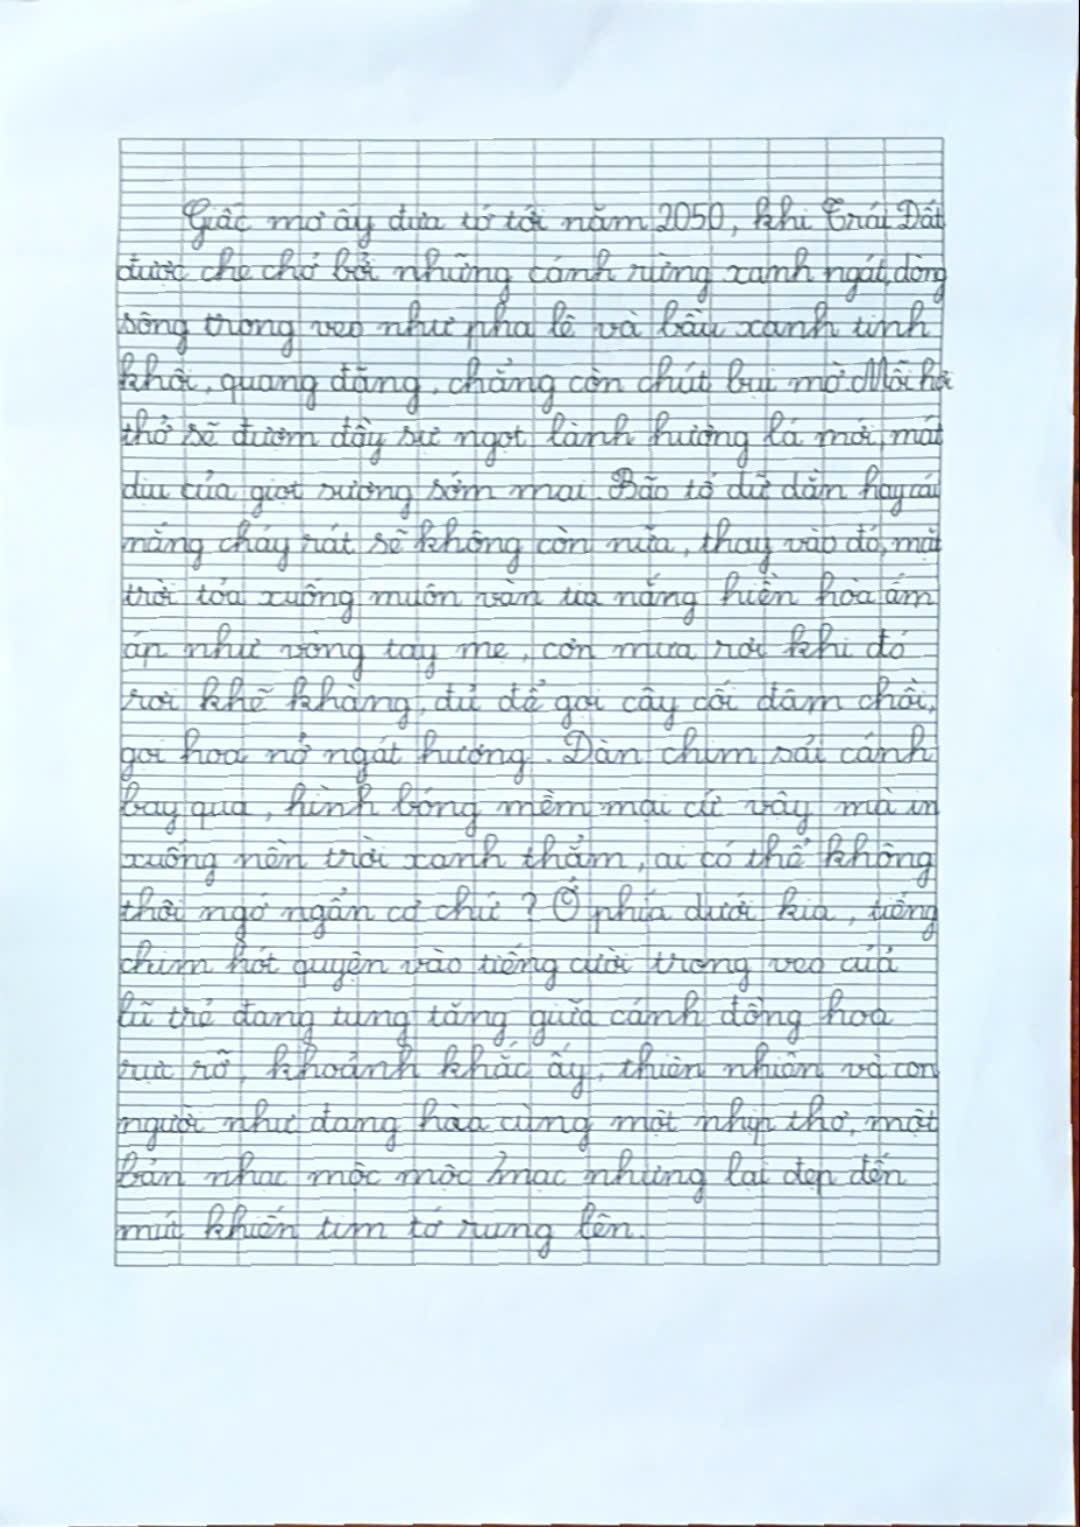 Giấc mơ ấy đưa tớ tới năm 2050, khi Trái Đất
được che chở bởi những cánh rừng xanh ngát, dòng
sông trong veo như pha lê và bầu xanh tinh
khôi, quang đãng, chẳng còn chút bụi mờ. Mỗi hơi
thở sẽ đượm đầy sự ngọt lành hương lá mới, mát
dịu của giọt sương sớm mai. Bão tố dữ dằn hay cái
nắng cháy rát sẽ không còn nữa, thay vào đó, mặt
trời tỏa xuống muôn vàn tia nắng hiền hòa ấm
áp như vòng tay mẹ, cơn mưa rơi khi đó
rơi khẽ khàng, đủ để gọi cây cối đâm chồi,
gọi hoa nở ngát hương. Đàn chim sải cánh
bay qua, hình bóng mềm mại cứ vậy mà in
xuống nền trời xanh thẳm, ai có thể không
thôi ngớ ngẩn cơ chứ? Ở phía dưới kia, tiếng
chim hót quyện vào tiếng cười trong veo của
lũ trẻ đang tung tăng giữa cánh đồng hoa
rực rỡ, khoảnh khắc ấy, thiên nhiên và con
người như đang hòa cùng một nhịp thơ, một
bản nhạc mộc mộc mạc nhưng lại đẹp đến
mức khiến tim tớ rung lên.